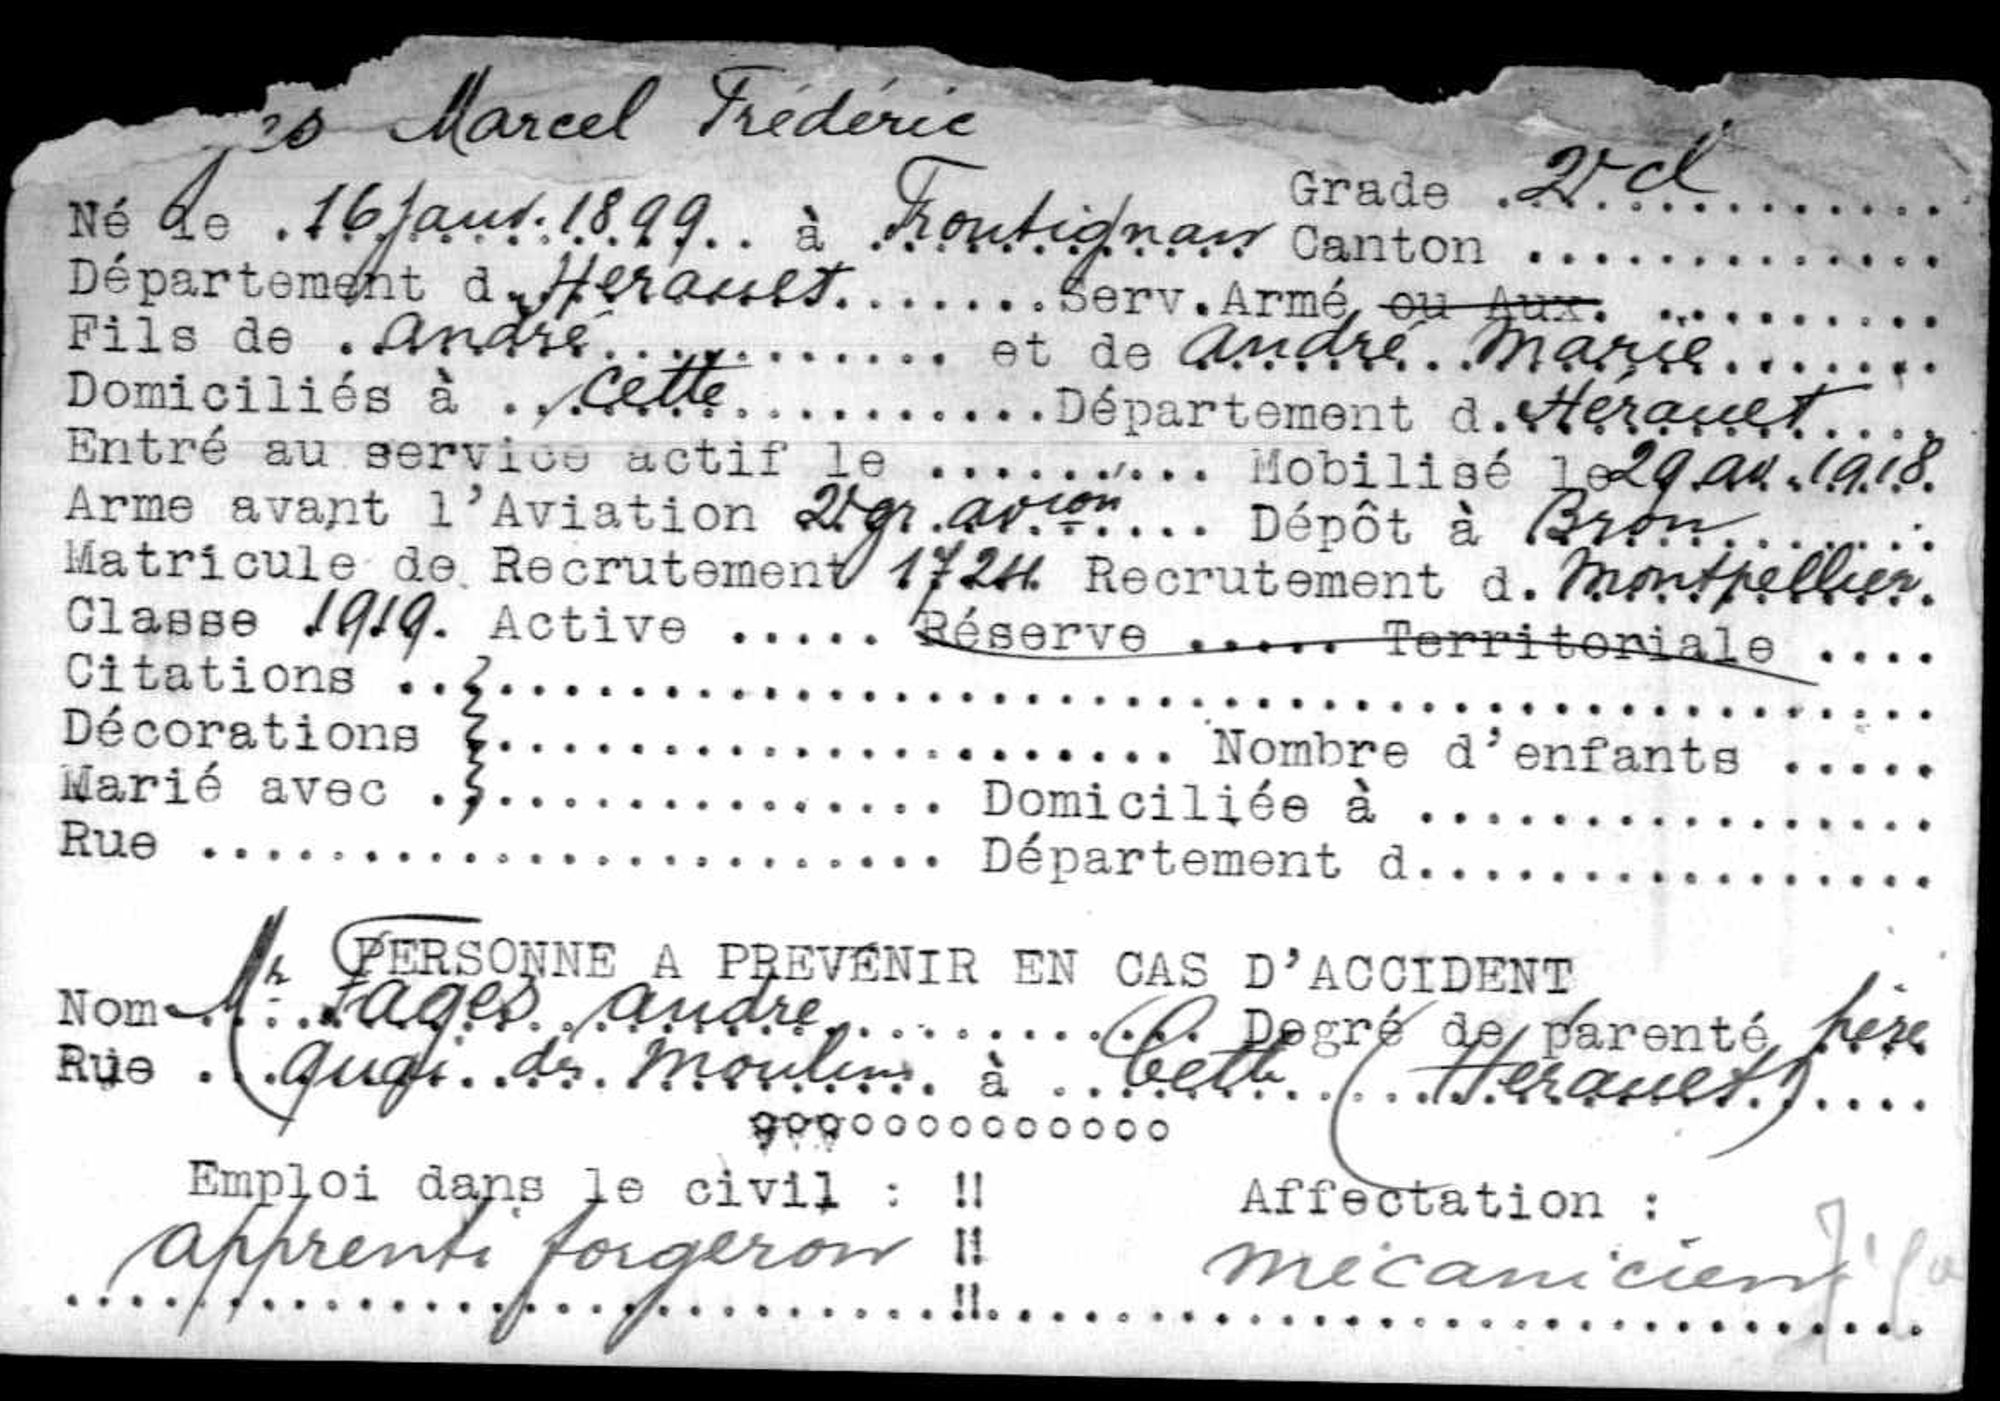 es Marcel Frédéric
Grade . 2e cl ............
Né le . 16 janv. 1899 .. à . Frontignan Canton ..............
Département d. Herault ....... Serv.Armé ou Aux. ..........
Fils de . André ............ et de André Marie .......
Domiciliés à .. Cette ............. Département d. Hérault ....
Entré au service actif le .......... Mobilisé le 29 av. 1918.
Arme avant l'Aviation 2e gr. avion .... Dépôt à Bron .......
Matricule de Recrutement 1724 Recrutement d. Montpellier.
Classe 1919. Active ..... Réserve ..... Territoriale ....
Citations ..............................................
Décorations .......................... Nombre d'enfants .....
Marié avec .................... Domiciliée à .................
Rue ............................ Département d.................
PERSONNE A PREVENIR EN CAS D'ACCIDENT
Nom Mr Fages André .............. Degré de parenté père
Rue .. quai des Moulins .. à .. Cette .... (Herault) ....
ooooooooooooo
Emploi dans le civil : !! Affectation :
apprenti forgeron !! mécanicien
..............................!!..............................